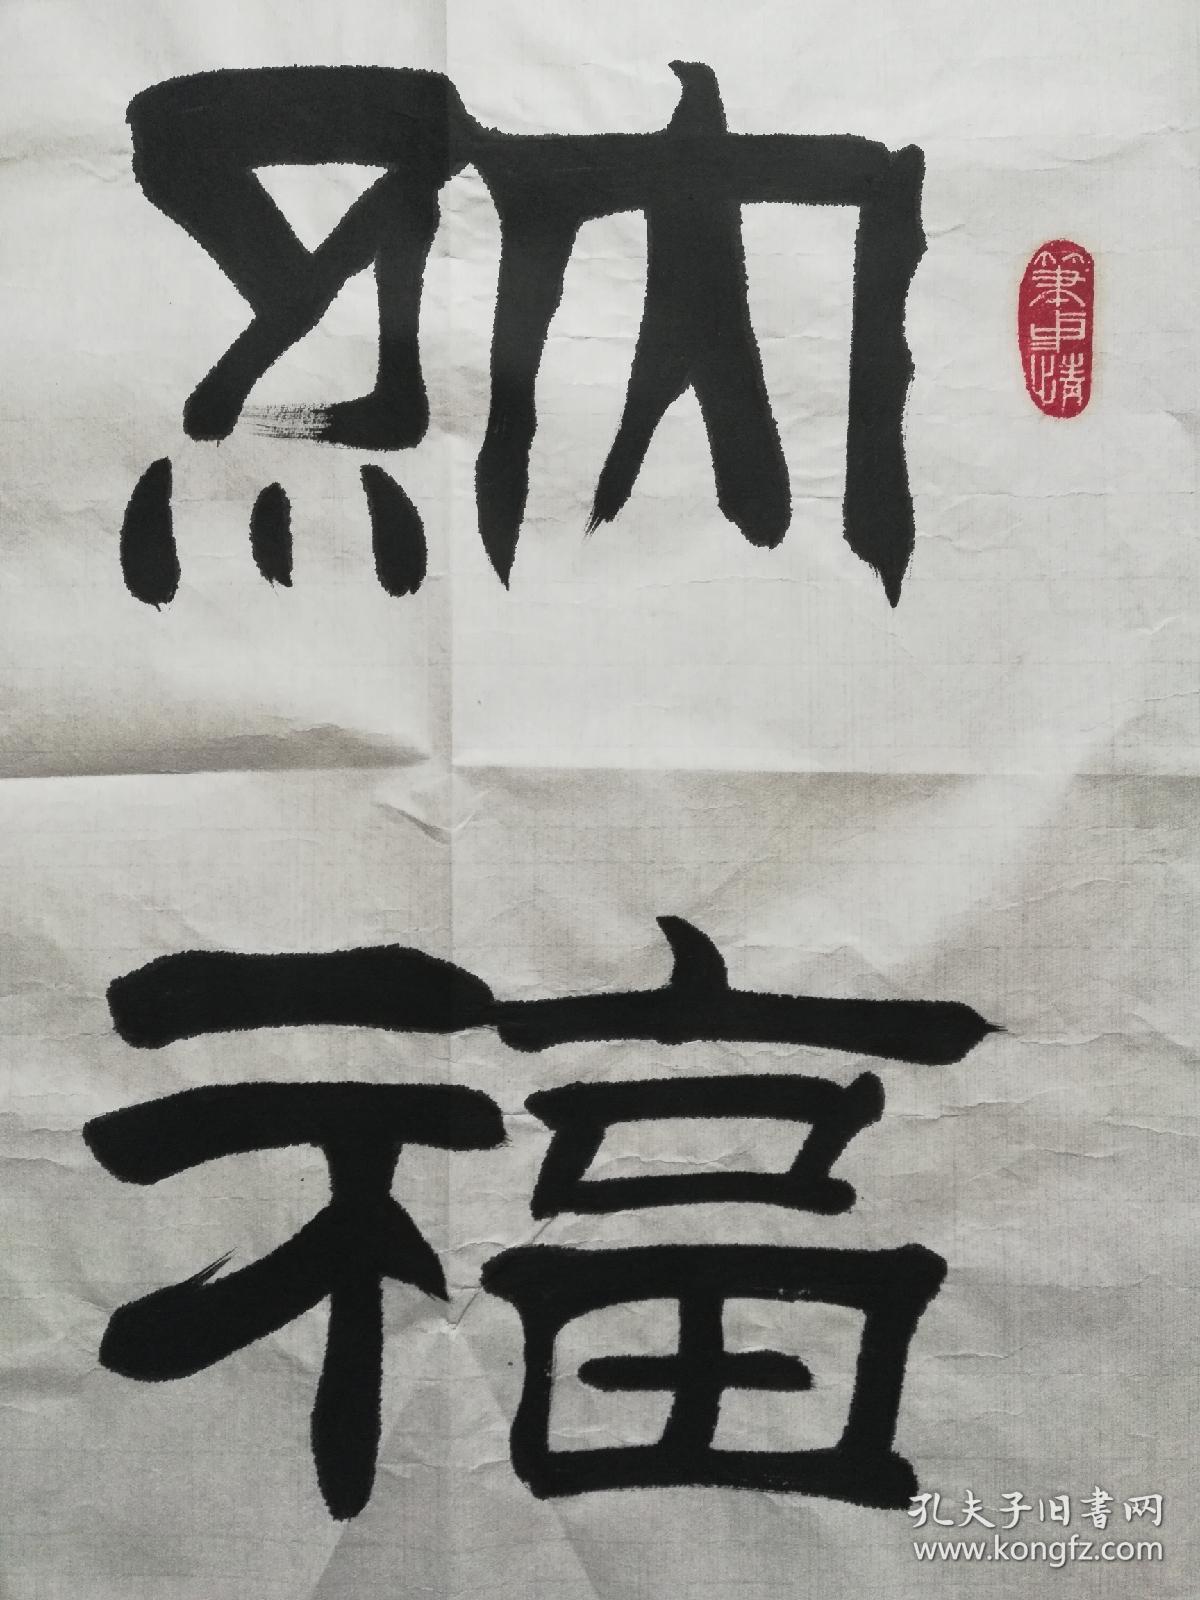 納
福
孔夫子旧书网
www.kongfz.com